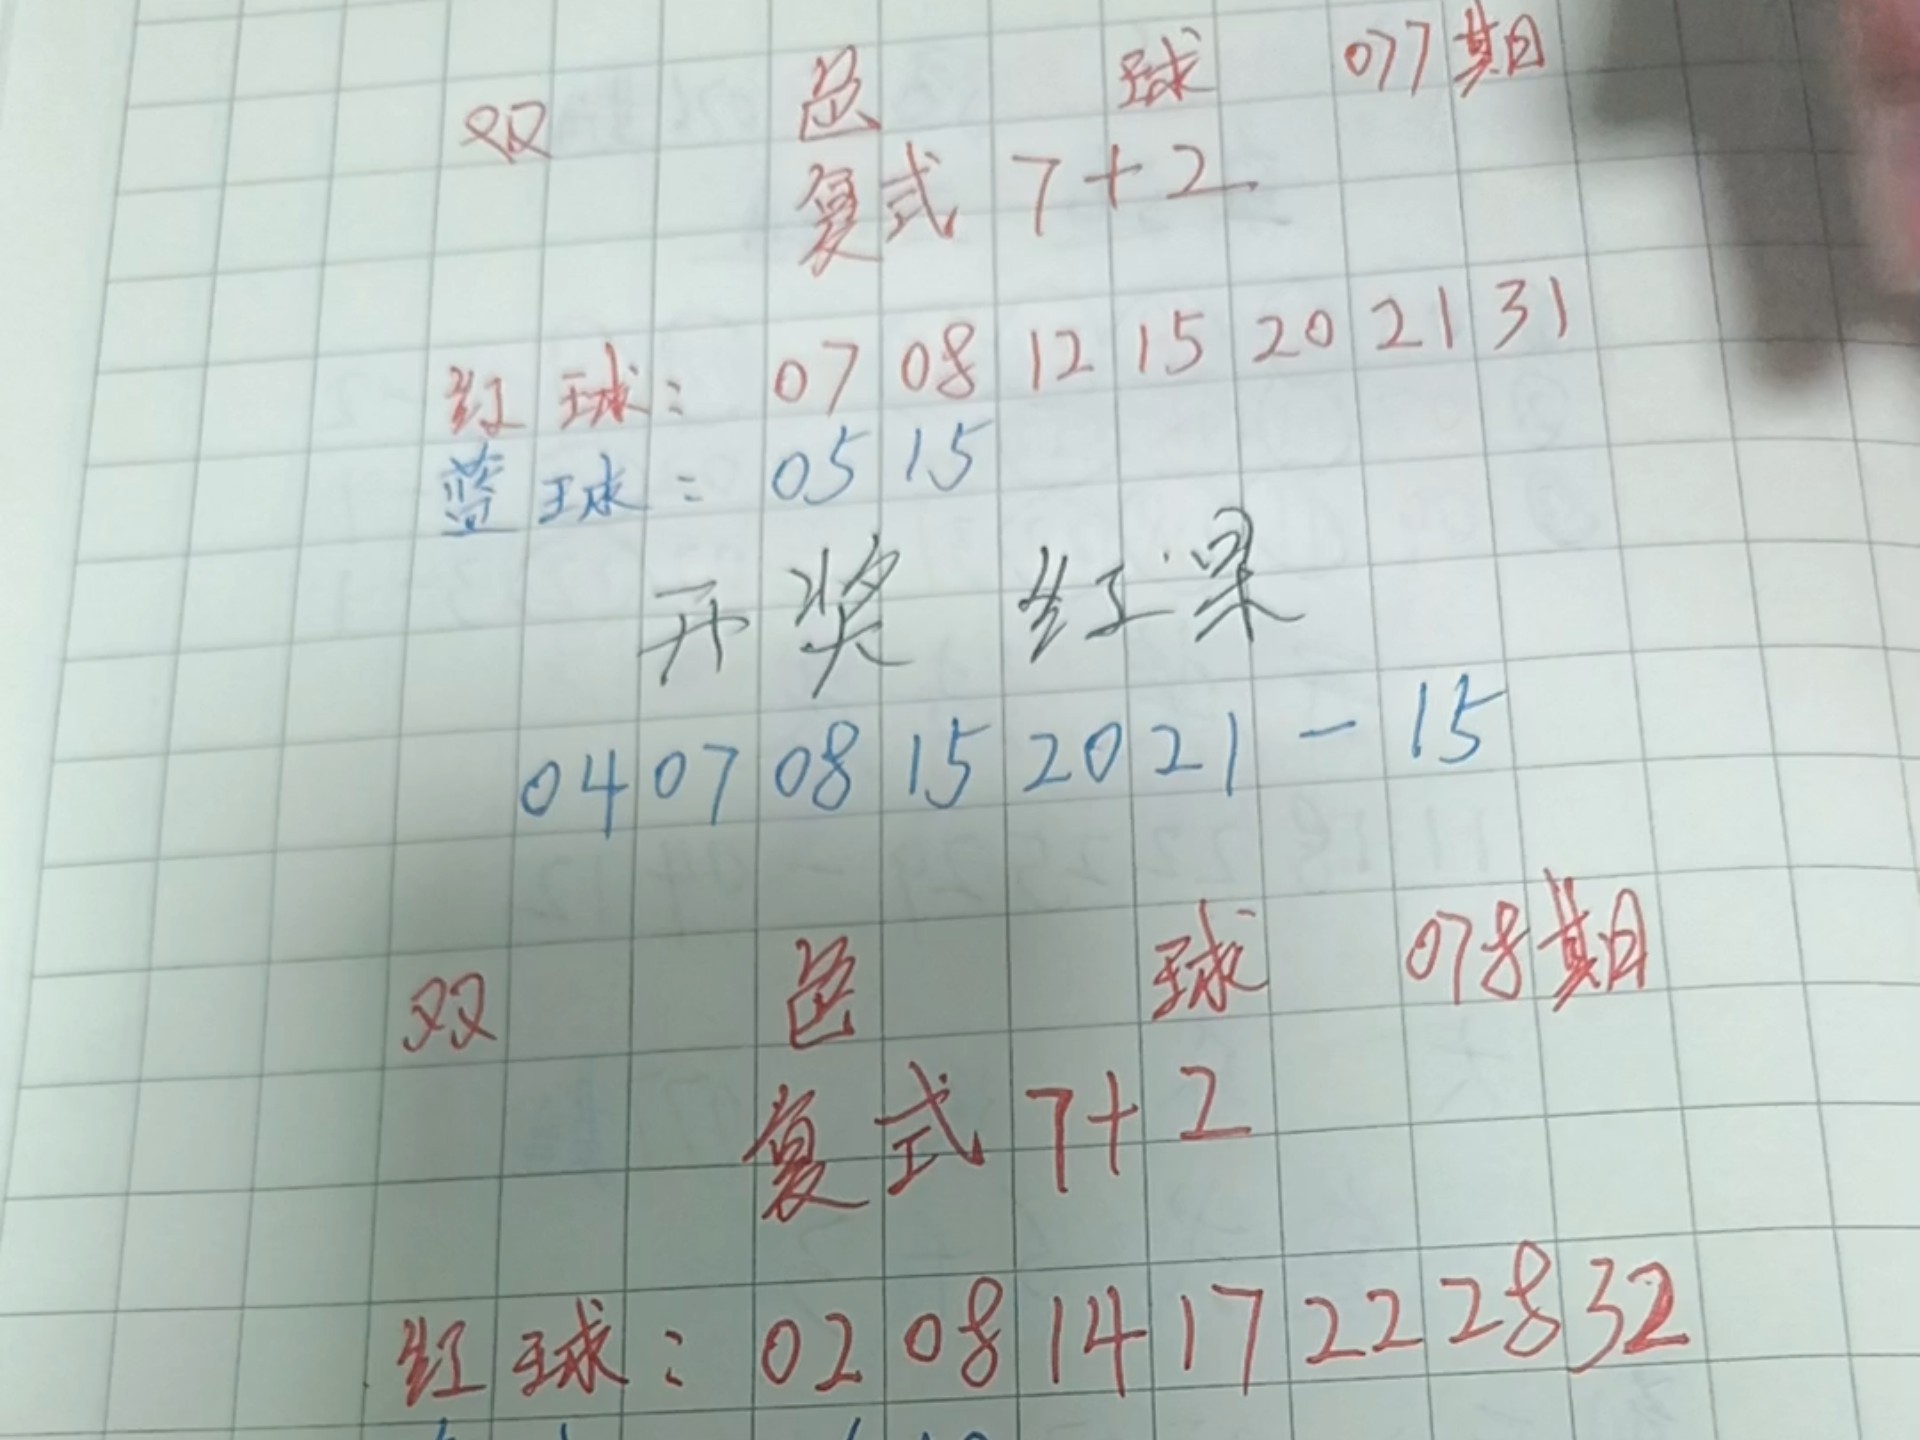 双 色 球 077期
复式 7+2
红球: 07 08 12 15 20 21 31
蓝球: 05 15
开奖 红果
04 07 08 15 20 21 - 15
双 色 球 078期
复式 7+2
红球: 02 08 14 17 22 28 32